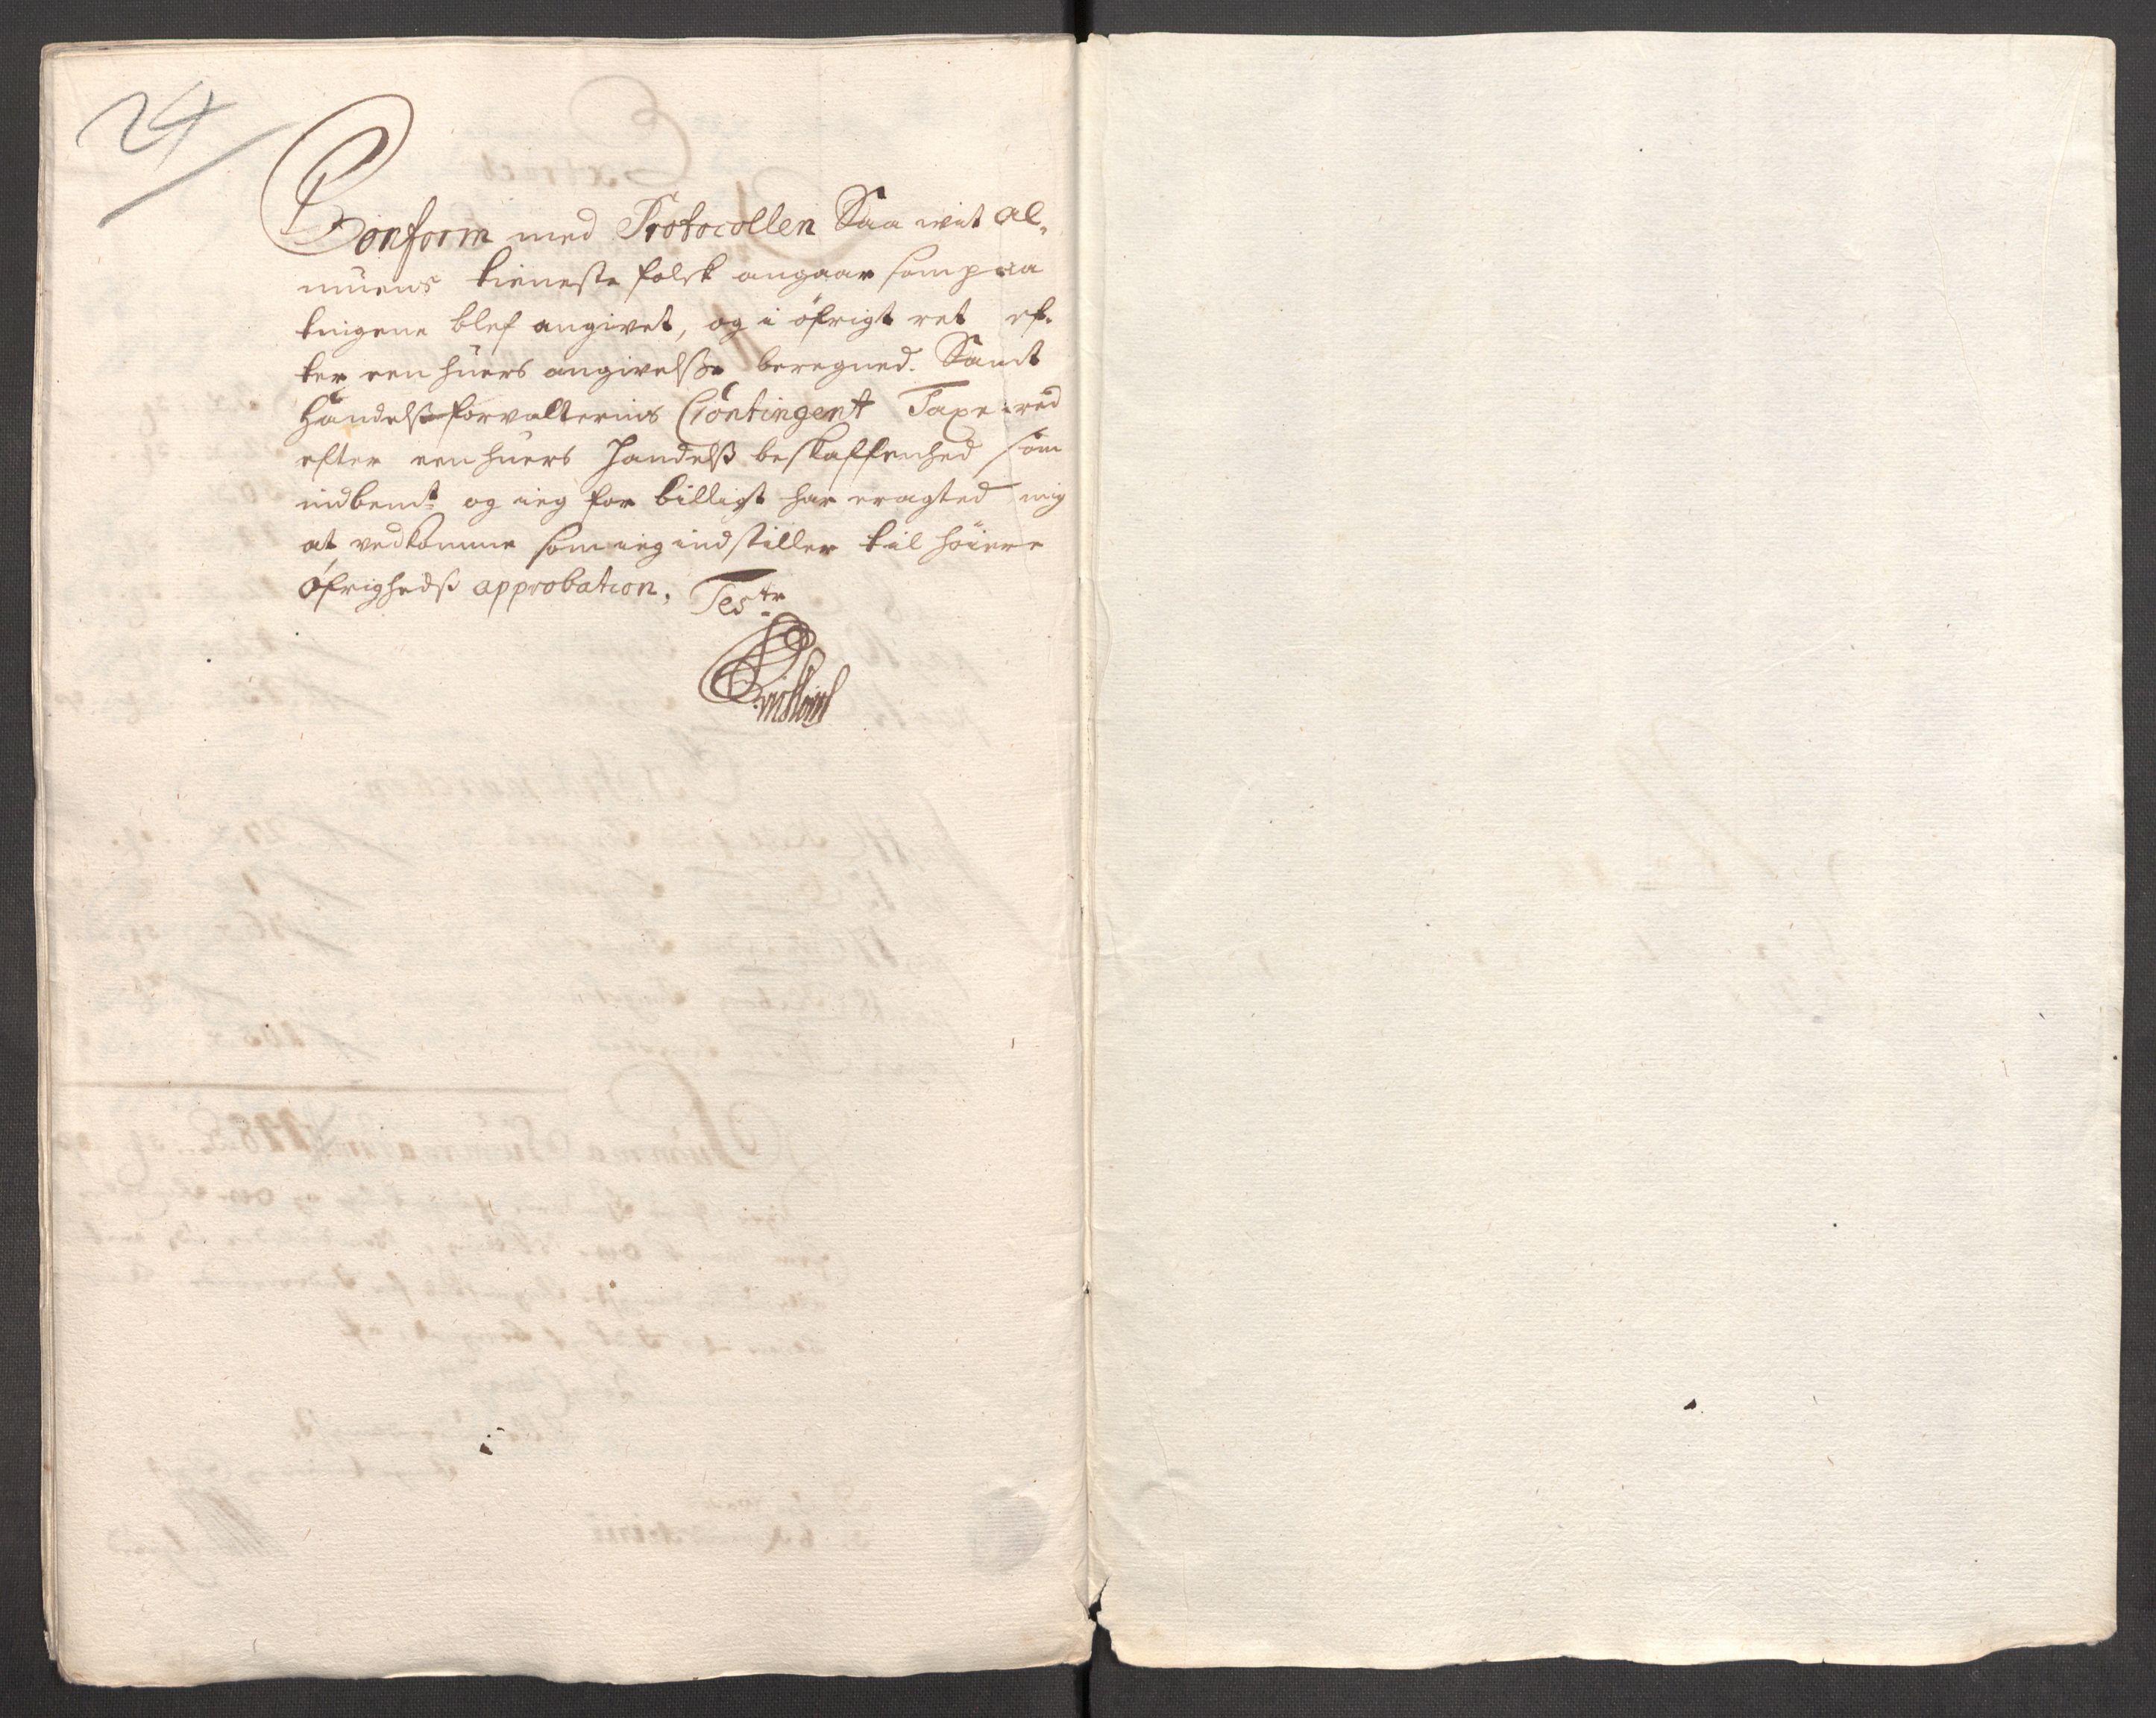 24
Conform med Protocollen Saa vit al,
muens tieneste folck angaar som paa
tingene blef angivet, og i öfrigt ret ef,
ter een huers angivelße beregned. Samt
Handels forvalternis Contingent Taxered
efter een huers Handelß beskaffenhed som
indbemt og ieg for billigt har eragted mig
at vedkomme som ieg indstiller til höiere
öfrighedß approbation, Test